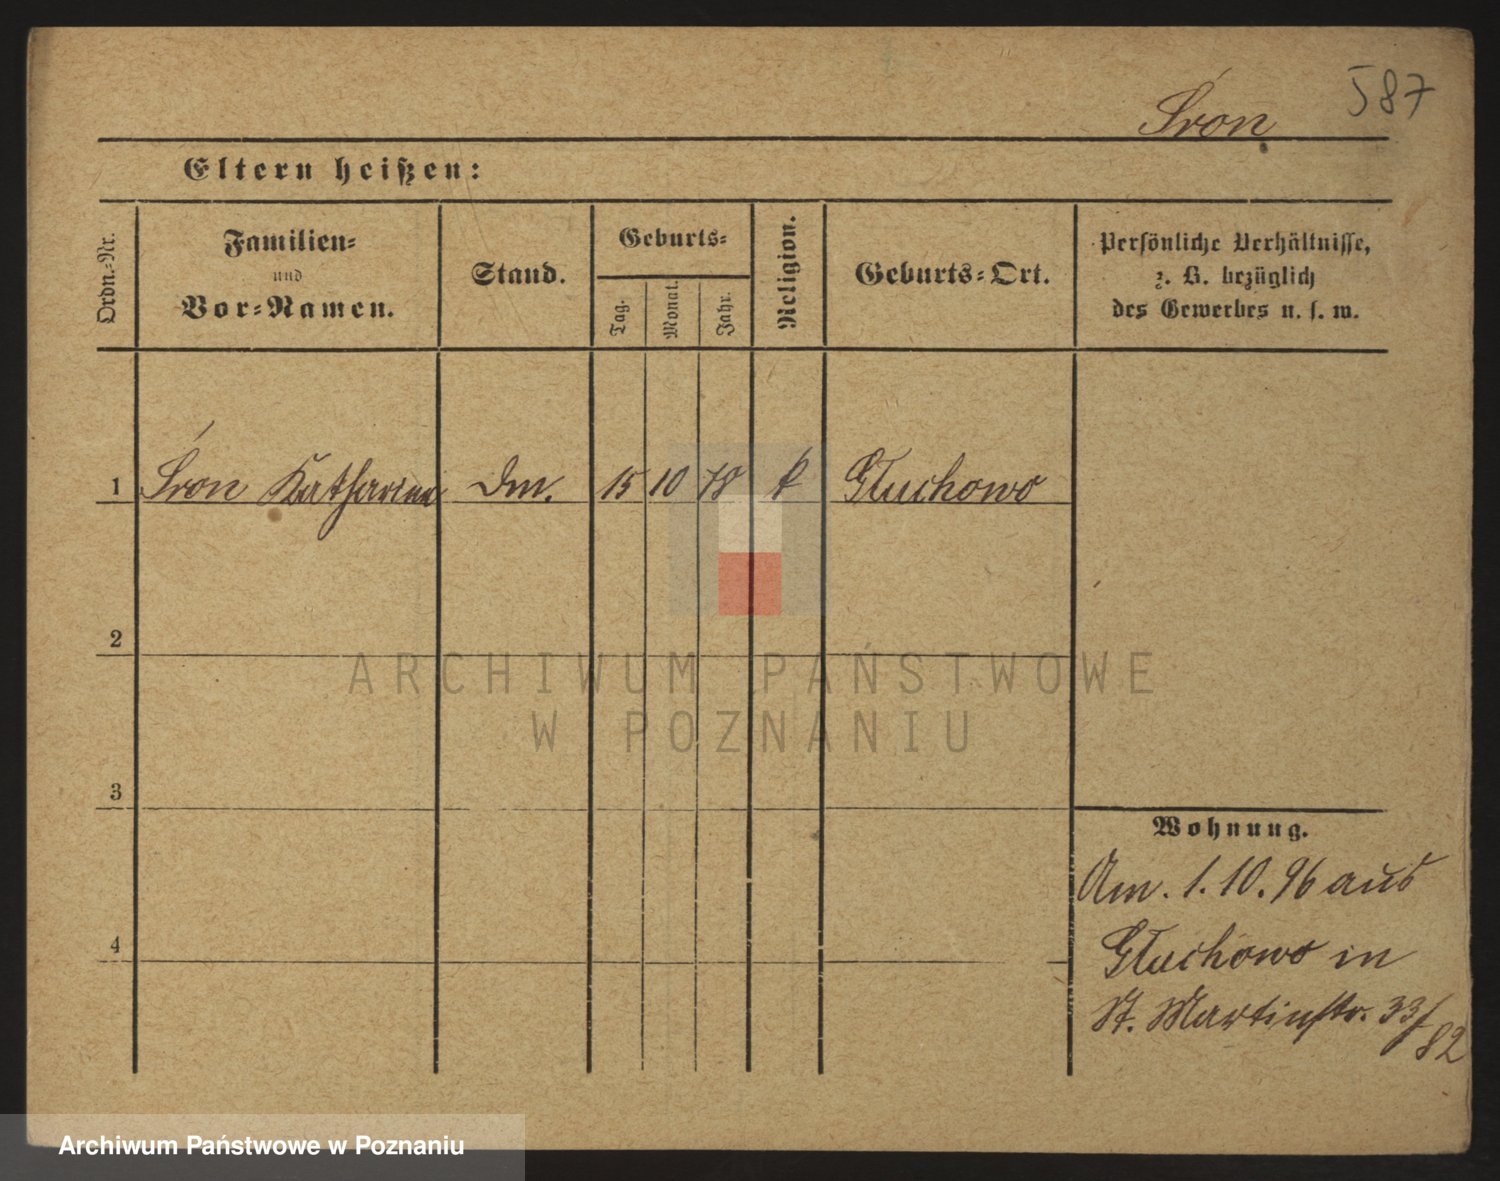 587
Śron
Eltern heißen:
Ordn.-Nr.
Familien-
und
Vor-Namen.
Stand.
Geburts-
Tag.
Monat.
Jahr.
Religion.
Geburts-Ort.
Persönliche Verhältnisse,
z. B. bezüglich
des Gewerbes u. s. w.
1 Śron Katharina Dm. 15 10 78 k Głuchowo
2
3
4
Wohnung.
Am. 1. 10. 96 aus
Głuchowo in
St. Martinstr. 33/
82
ARCHIWUM PAŃSTWOWE
W POZNANIU
Archiwum Państwowe w Poznaniu